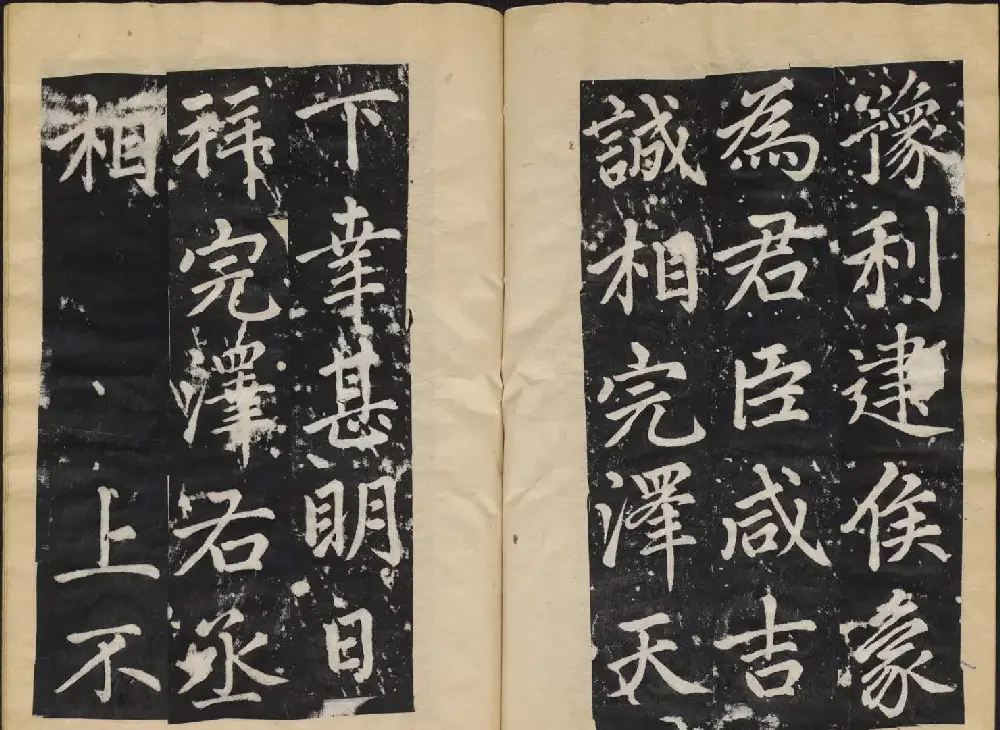 豫利建侯蒙
為君臣咸吉
誠相完澤天
下幸甚明日
拜完澤右丞
相上不